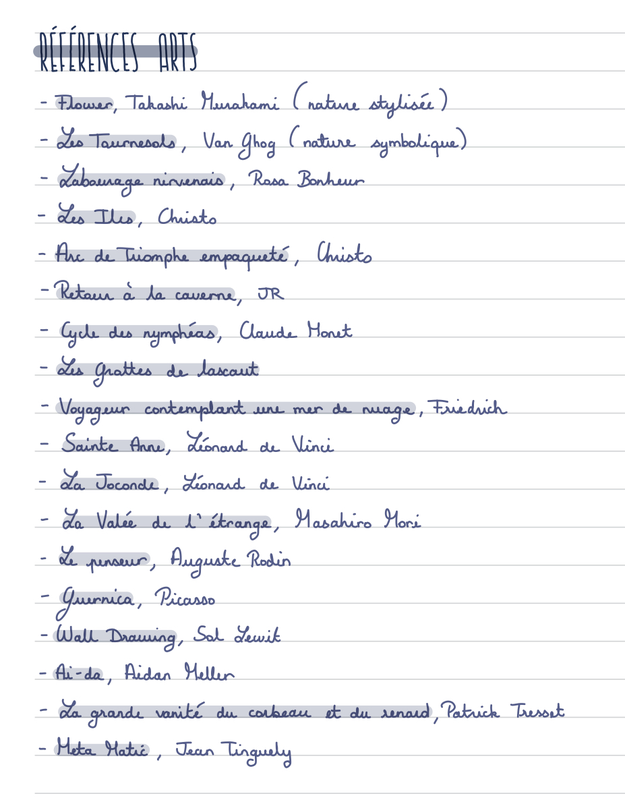 RÉFÉRENCES ARTS
- Flower, Takashi Murakami (nature stylisée)
- Les Tournesols, Van Ghog (nature symbolique)
- Labourage nirvenais, Rosa Bonheur
- Les Iles, Christo
- Arc de Triomphe empaqueté, Christo
- Retour à la caverne, JR
- Cycle des nymphéas, Claude Monet
- Les grottes de lascaut
- Voyageur contemplant une mer de nuage, Friedrich
- Sainte Anne, Léonard de Vinci
- La Joconde, Léonard de Vinci
- La Valée de l'étrange, Masahiro Mori
- Le penseur, Auguste Rodin
- Guernica, Picasso
- Wall Drawing, Sol Lewit
- Ai-da, Aidan Meller
- La grande vanité du corbeau et du renard, Patrick Tresset
- Meta Matic, Jean Tinguely